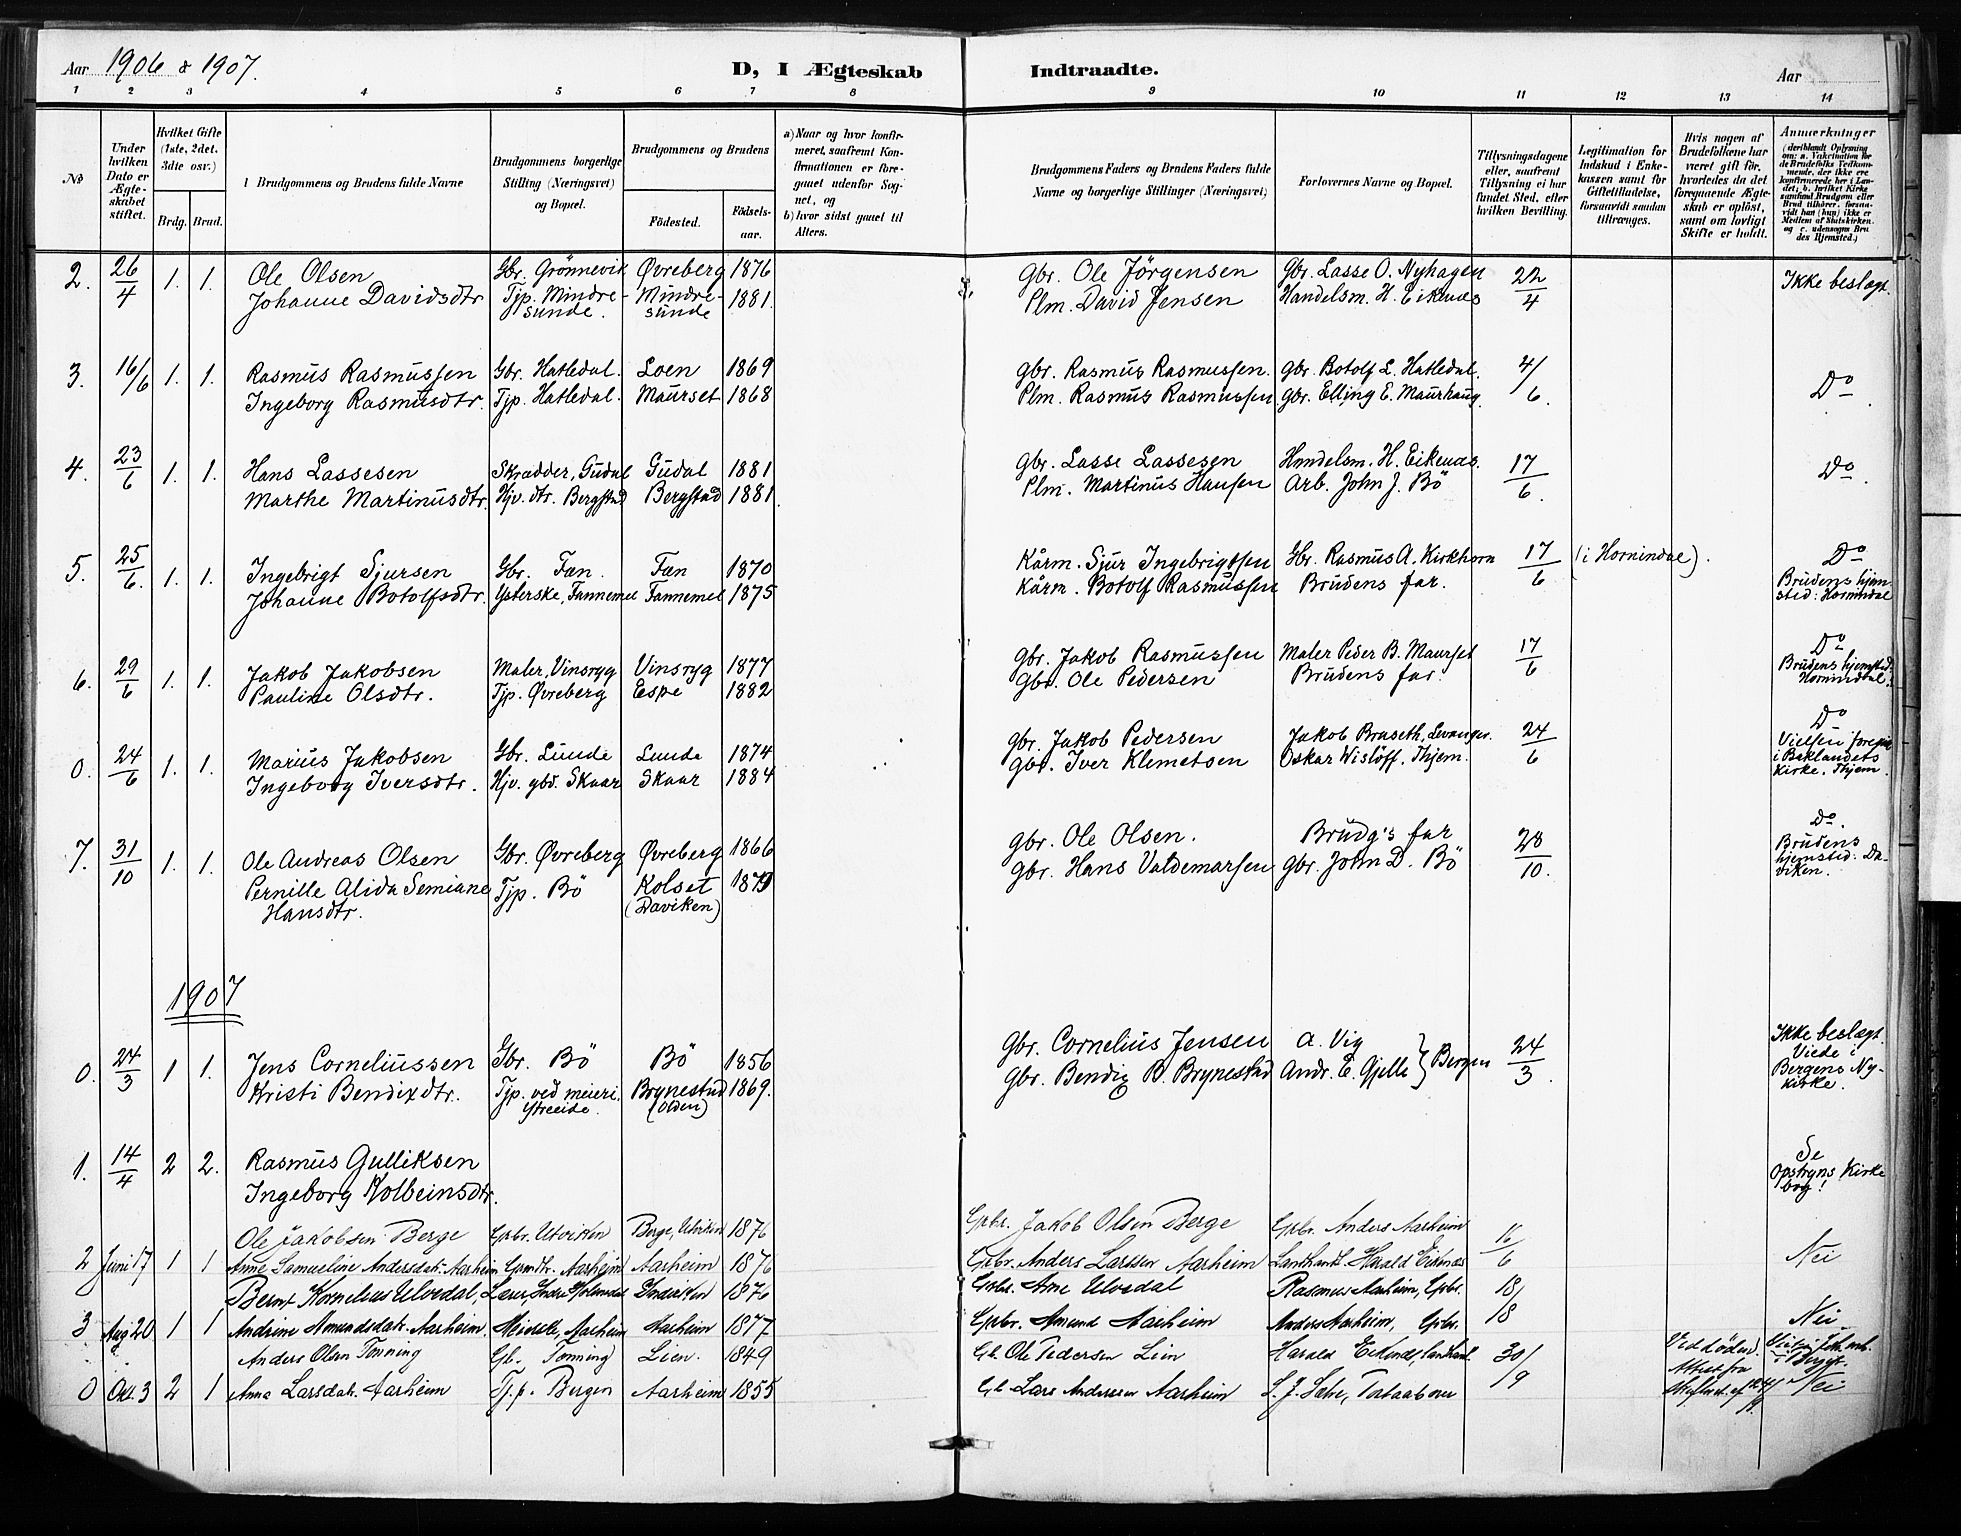 Aar 1906 & 1907.
D, I Ægteskab Indtraadte.
Aar
1 2 3 4 5 6 7 8 9 10 11 12 13 14
No
Under hvilken Dato er Ægteskabet stiftet.
Hvilket Gifte (1ste, 2det. 3die osv.)
Brdg. Brud.
Brudgommens og Brudens fulde Navne
Brudgommens borgerlige Stilling (Næringsvei) og Bopæl.
Brudgommens og Brudens
Födested. Födselsaar.
a) Naar og hvor konfirmeret, saafremt Konfirmationen er foregaaet udenfor Sognet, og
b) hvor sidst gaaet til Alters.
Brudgommens Faders og Brudens Faders fulde Navne og borgerlige Stillinger (Næringsvei)
Forlovernes Navne og Bopæl.
Tillysningsdagene eller, saafremt Tillysning ei har fundet Sted, efter hvilken Bevilling.
Legitimation for Indskud i Enkekassen samt for Giftetilladelse, forsaavidt saadan tiltrænges.
Hvis nogen af Brudefolkene har været gift för, hvorledes da det foregaaende Ægteskab er oplöst, samt om lovligt Skifte er holdt.
Anmærkninger (deriblandt Oplysning om: a. Vakcination for de Brudefolks Vedkommende, der ikke ere konfirmerede her i Landet, b. hvilket Kirkesamfund Brudgom eller Brud tilhörer, forsaavidt han (hun) ikke er Medlem af Statskirken. og c. udensogns Brudes Hjemsted.)
2. 26/4 1. 1. Ole Olsen Gbr. Grönnevik Øvreberg 1876 Gbr. Ole Jörgensen Gbr. Lasse O. Nyhagen 22/4 Ikke beslægt.
Johanne Davidsdtr Tjp. Mindresunde. Mindresunde 1881. Plm. David Jensen Handelsm. H. Eikenæs
3. 16/6 1. 1. Rasmus Rasmussen Gbr. Hatledal. Loen 1869 Gbr. Rasmus Rasmussen. Gbr. Botolf L. Hatledal. 4/6. Do
Ingeborg Rasmusdtr. Tjp. Hatledal. Maurset 1868 Plm. Rasmus Rasmussen Gbr. Elling E. Maurhaug.
4. 23/6 1. 1. Hans Lassesen Skrædder, Gudal Gudal 1881 Gbr. Lasse Lassesen Handelsm. H. Eikenæs. 17/6. Do
Marthe Martinusdtr. Hjv. dtr. Bergstad Bergstad 1881. Plm. Martinus Hansen Arb. John J. Bö
5. 25/6. 1. 1. Ingebrigt Sjursen Gbr. Fæn. Fæn 1870 Kårm. Sjur Ingebrigtsen Gbr. Rasmus A. Kirkhorn 17/6 (i Hornindal). Do
Johanne Botolfsdtr. Ysterske, Fannemel Fannemel 1875 Kårm. Botolf Rasmussen Brudens far. Brudens hjemsted: Hornindal
6. 29/6 1. 1. Jakob Jakobsen Maler, Vinsryg Vinsryg 1877 Gbr. Jakob Rasmussen Maler Peder B. Maurset 17/6 Do
Pauline Olsdtr. Tjp. Øvreberg Espe 1882 Gbr. Ole Pedersen Brudens far. Brudens hjemsted: Hornindal.
0. 24/6 1. 1. Marius Jakobsen Gbr. Lunde Lunde 1874 Gbr. Jakob Pedersen Jakob Braseth, Levanger. 24/6 Do
Ingeborg Iversdtr. Hjv. gbd. Skaar Skaar 1884 Gbr. Iver Klemetsen Oskar Wislöff. Thjem. Vielsen foregik i Baklandets Kirke. Thjem.
7. 31/10 1. 1. Ole Andreas Olsen Gbr. Øvreberg Øvreberg 1866 Gbr. Ole Olsen. Brudg's far 28/10. Do.
Pernille Alida Semiane Hansdtr. Tjp. Bö Kolset (Daviken) Gbr. Hans Valdemarsen Gbr. John D. Bö Brudens hjemsted: Daviken.
1907
0. 24/3 1 1. Jens Corneliussen Gbr. Bö Bö 1856 Gbr. Cornelius Jensen A. Vig 24/3. Ikke beslægt.
Kristi Bendixdtr. Tjp. ved meieri. Ytreeide. Brynestad (Olden) 1869. Gbr. Bendix B. Brynestad Andr. E. Gjelle } Bergen Viede i Bergens Nykirke.
1. 14/4 2 2. Rasmus Gulliksen Se Opstryns Kirkebog!
Ingeborg Kolbeinsdtr.
Ole Jakobsen Berge Gbr. Utviken Berge, Utviken 1876 Gbr. Jakob Olsen Berge Gbr. Anders Aarheim 16/6
2 Juni 17 1 1 Anne Samueline Andersdatr. Aarheim Aarheim Aarheim 1876 Gbr. Anders Larssen Aarheim Landhandl. Harald Eikenæs Nei
Bernt Kornelius Ulvedal, Indviken 1876 Gbr. Arne Ulvedal Rasmus Aarheim, Gbr. 18/
3 Aug 20 1 1 Andrine Amundsdatr. Aarheim. Aarheim Aarheim 1877 Gbr. Amund Aarheim Anders Aarheim, Gbr. 18 Nei
Anders Olsen Tonning Gb. Tonning Lien. 1849 Gb. Ole Pedersen Lien Harald Eikenæs, landhandl. 30/9 Ved döden.
0 Okt. 3 2 1 Anna Larsdatr. Aarheim Tj.p. Bergen Aarheim 1855 Gb. Lars Andersen Aarheim Nei